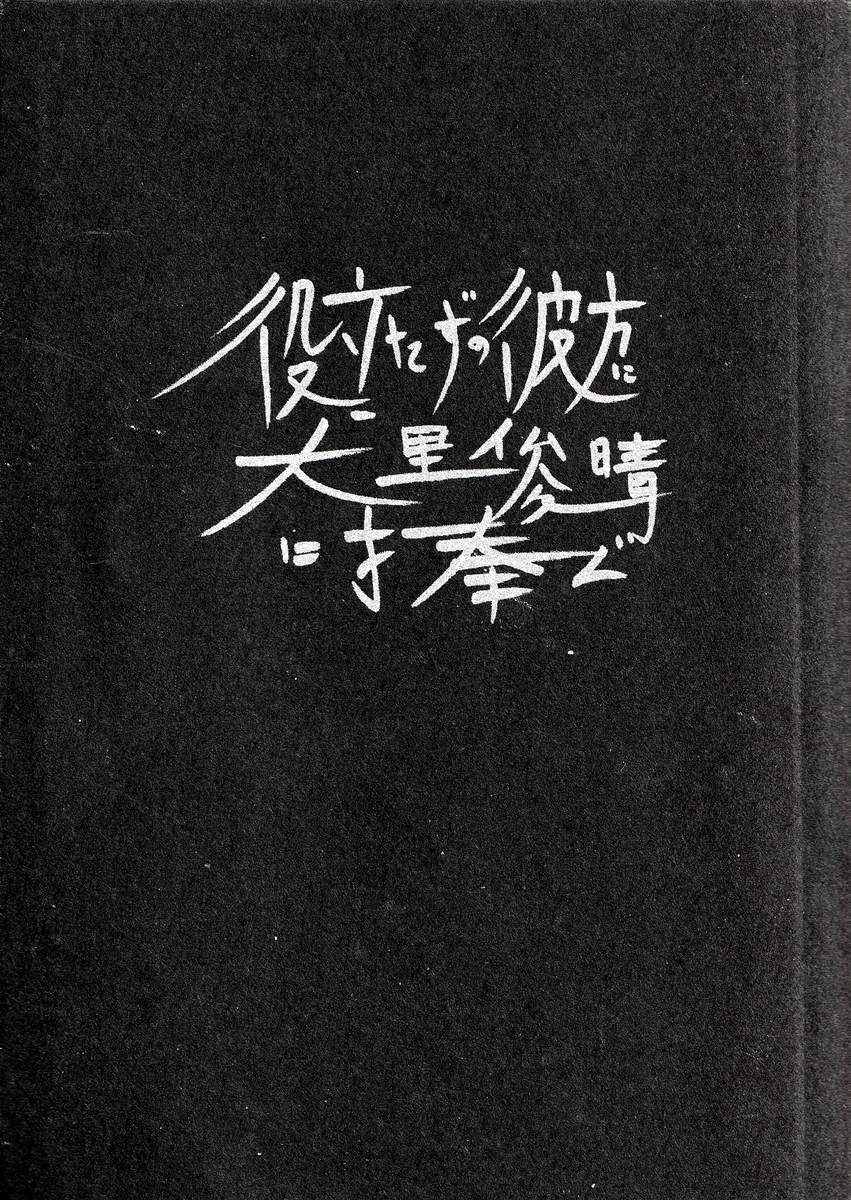 役立たずの彼方に
大里俊晴
に捧ぐ